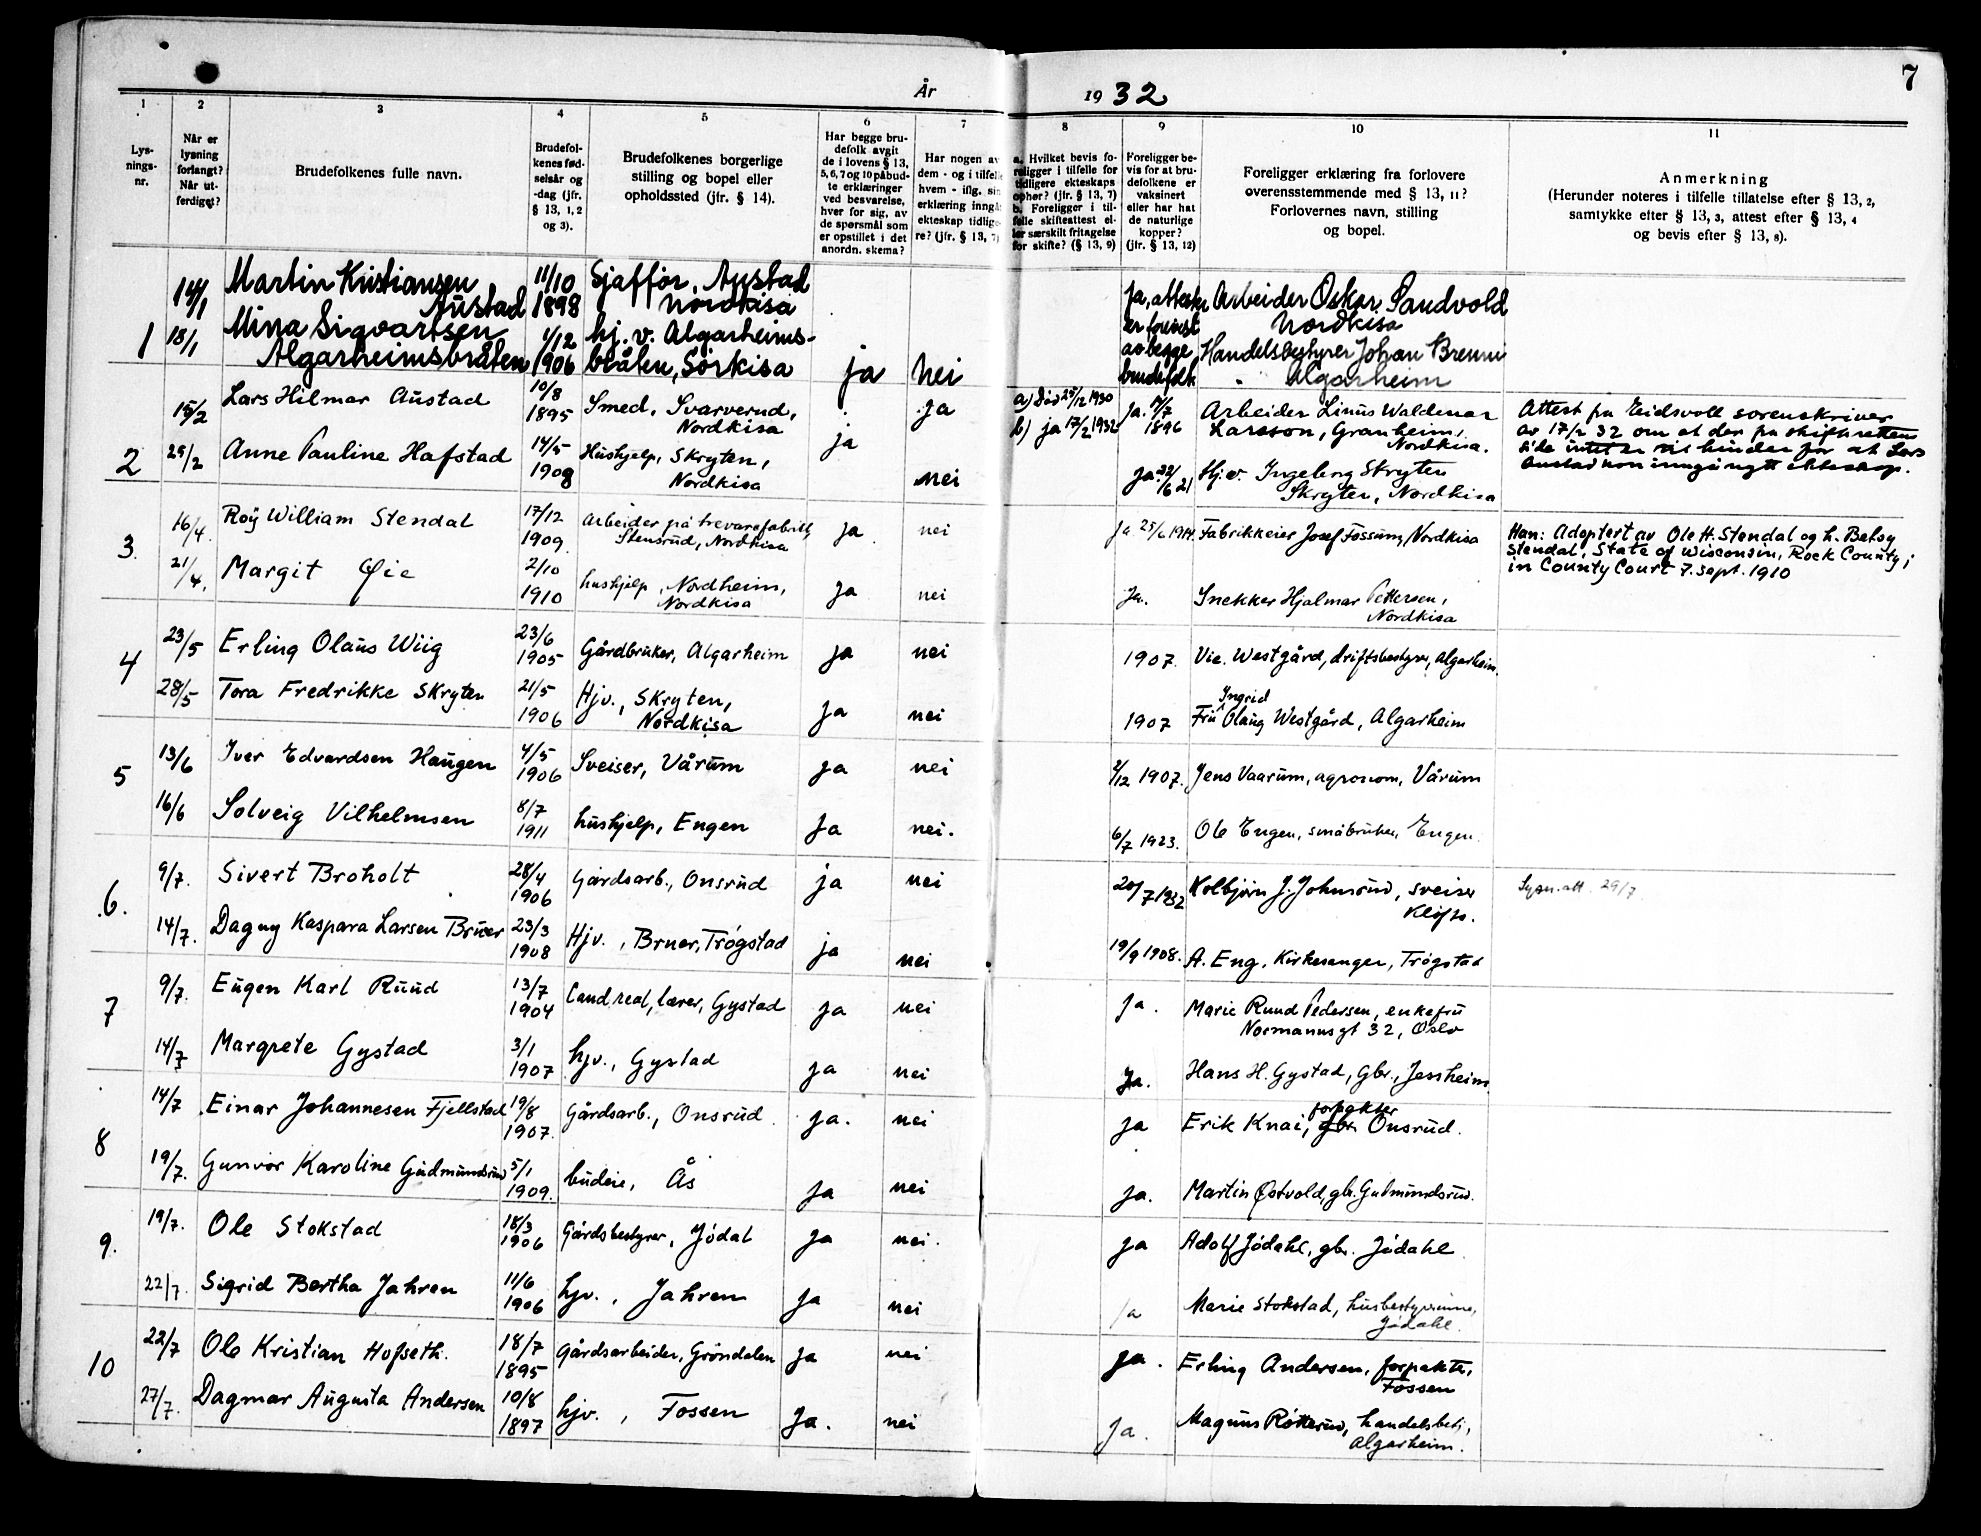 År 1932
7
1 2 3 4 5 6 7 8 9 10 11
Lys-
nings-
nr.
Når er
lysning
forlangt?
Når ut-
ferdiget?
Brudefolkenes fulle navn.
Brudefol-
kenes fød-
selsår og
-dag (jfr.
§ 13, 1, 2
og 3).
Brudefolkenes borgerlige
stilling og bopel eller
opholdssted (jfr. § 14).
Har begge bru-
defolk avgit
de i lovens § 13,
5, 6, 7 og 10 påbud-
te erklæringer
ved besvarelse,
hver for sig, av
de spørsmål som
er opstillet i det
anordn. skema?
Har nogen av
dem - og i tilfelle
hvem - iflg. sin
erklæring inngå
ekteskap tidlige-
re? (jfr. § 13, 7)
a. Hvilket bevis fo-
religger i tilfelle for
tidligere ekteskaps
ophør? (jfr. § 13, 7)
b. Foreligger i til-
felle skifteattest el-
ler særskilt fritagelse
for skifte? (§ 13, 9)
Foreligger be-
vis for at bru-
defolkene er
vaksinert
eller har hat
de naturlige
kopper?
(jfr. § 13, 12)
Foreligger erklæring fra forlovere
overensstemmende med § 13, 11?
Forlovernes navn, stilling
og bopel.
Anmerkning
(Herunder noteres i tilfelle tillatelse efter § 13, 2,
samtykke efter § 13, 3, attest efter § 13, 4
og bevis efter § 13, 8).
1
14/1 Martin Kristiansen Austad 11/10 1898 Sjåfför, Austad Nordkisa
Ja, attester er forevist av begge brudefolk
Arbeider Oskar Sandvold
Nordkisa
18/1 Mina Sigvartsen Algarheimsbråten 1/12 1906 hj. v. Algarheims-
bråten, Sörkisa ja nei
Handelsbestyrer Johan Brenni
Algarheim
2
15/2 Lars Hilmar Austad 10/8 1895 Smed, Svarverud,
Nordkisa ja
a) Død 25/12 1930
b) ja 17/2 1932
Ja. /7 1896
Arbeider Linus Waldemar
Larsson, Granheim,
Nordkisa.
Attest fra Eidsvoll sorenskriver
av 17/2 32 om at der fra skifterettens
side intet er til hinder for at Lars
Austad kan inngå nytt ekteskap.
29/2 Anne Pauline Hafstad 14/5 1908 Hushjelp, Skryten,
Nordkisa ja nei
Ja 22/6 21 Hj. v. Ingeborg Skryten
Skryten, Nordkisa
3.
16/4. Roy William Stendal 17/12 1909. Arbeider på trevarefabrikk
Stensrud, Nordkisa ja nei
Ja 25/6 1914. Fabrikkeier Josef Fossum, Nordkisa
Han: Adoptert av Ole H. Stendal og h. Betsy
Stendal, State of Wisconsin, Rock County;
in County Court 7. sept. 1910
21/4. Margit Øie 2/10 1910 hushjelp, Nordheim,
Nordkisa ja nei
Ja. Snekker Hjalmar Pettersen,
Nordkisa
4
23/5 Erling Olaus Wiig 23/6 1905 Gårdbruker, Algarheim ja nei
1907. Vic. Westgård, driftsbestyrer, Algarheim.
28/5 Tora Fredrikke Skryten 21/5 1906 Hjv., Skryten,
Nordkisa ja nei
1907 Fru Ingrid Olaug Westgård, Algarheim
5
13/6 Iver Edvardsen Haugen 4/5 1906 Sveiser, Vårum ja nei
2/12 1907. Jens Vaarum, agronom, Vårum
16/6 Solveig Vilhelmsen 8/7 1911 hushjelp, Engen ja nei.
6/7 1923. Ole Engen, småbruker, Engen.
6.
9/7. Sivert Broholt 28/4 1906 Gårdsarb., Onsrud ja nei
20/7 1932 Kolbjörn J. Johnsrud, sveiser
Kløfta.
29/7
14/7. Dagny Kaspara Larsen Bruer 23/3 1908 Hjv., Bruer, Trøgstad ja nei
19/9 1908. A. Eng, Kirkesanger, Trøgstad
7
9/7. Eugen Karl Ruud 13/7 1904 Cand real, lærer, Gystad ja nei
ja. Marie Ruud Pedersen, enkefru
Normannsgt 32, Oslo
14/7 Margrete Gystad 3/1 1907 hjv., Gystad ja nei
Ja. Hans H. Gystad, gbr., Jessheim
8
14/7 Einar Johannesen Fjellstad 19/8 1907. Gårdsarb., Onsrud ja. nei
ja Erik Knai, gbr. forpakter Onsrud.
19/7. Gunvor Karoline Gudmundsrud 5/1 1909. budeie, Ås ja nei
ja. Martin Østvold, gbr. Gudmundsrud.
9.
19/7. Ole Stokstad 18/3 1906 Gårdsbestyrer, Jödal ja nei.
ja Adolf Jödahl, gbr. Jödahl
22/7. Sigrid Bertha Jahren 11/6 1906 hjv., Jahren ja nei
ja Marie Stokstad, husbestyrerinne,
Jödahl.
10
22/7 Ole Kristian Hofseth. 18/7 1895 Gårdsarbeider, Gröndalen ja nei
ja. Erling Andersen, forpakter,
Fossen
27/7. Dagmar Augusta Andersen 10/8 1897 hjv., Fossen ja. nei
Ja. Magnus Rotterud, handelsbest,
Algarheim.